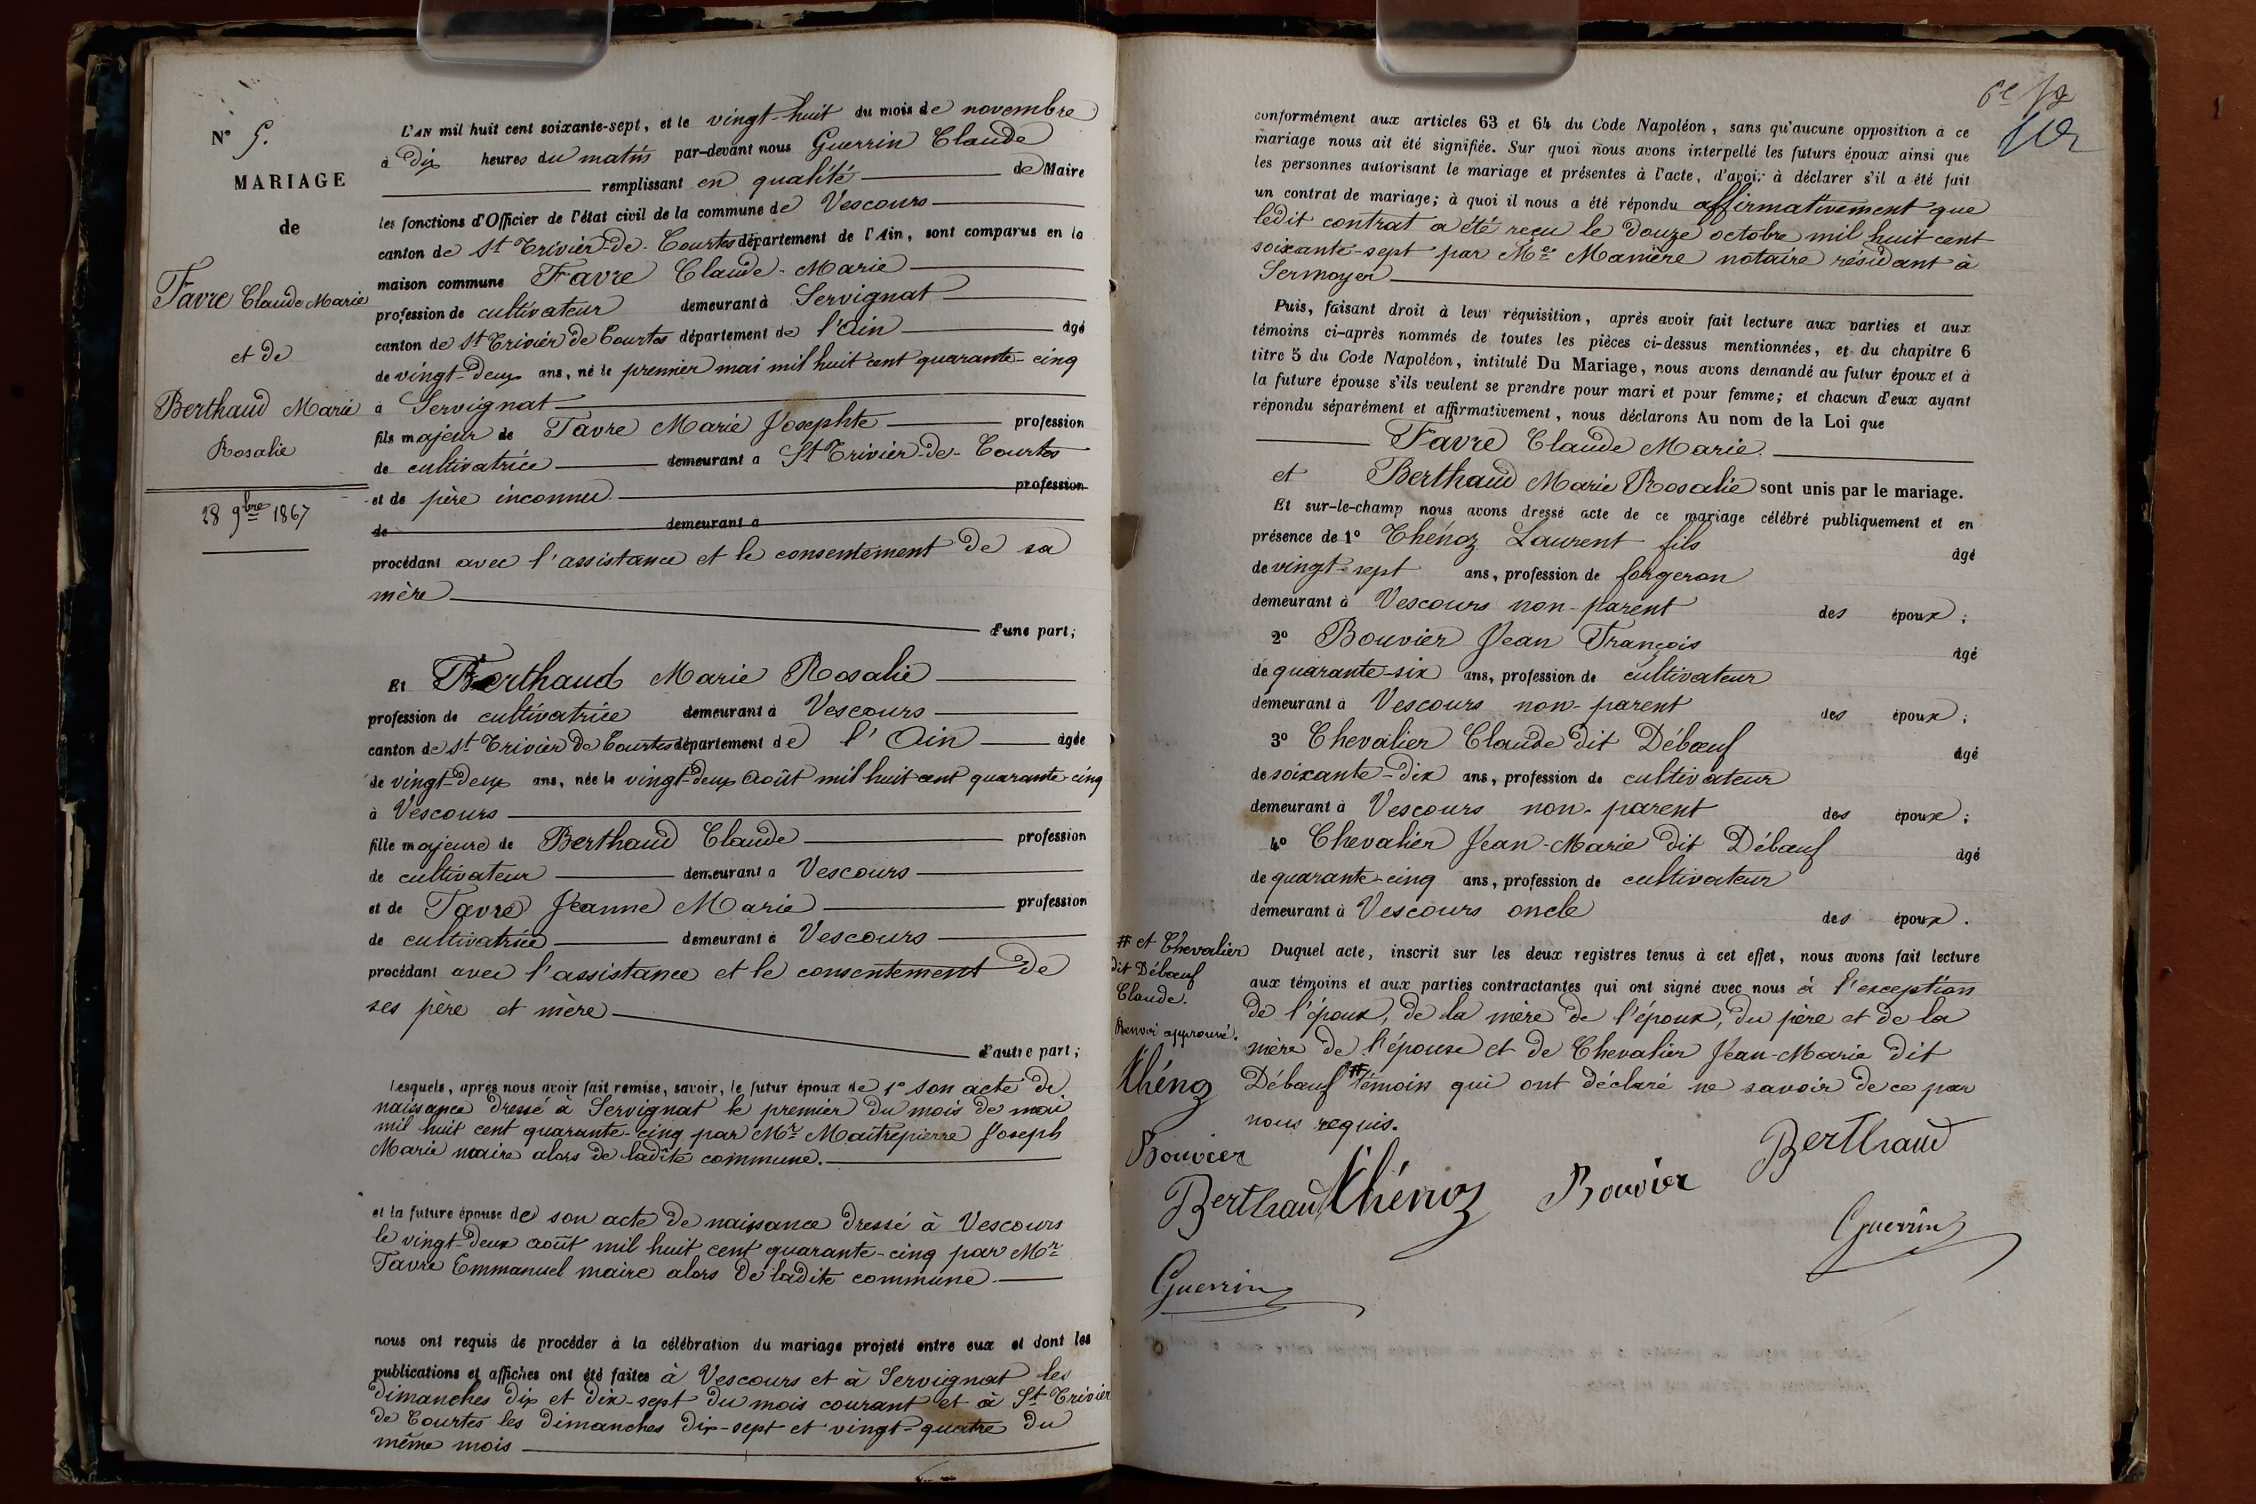 N° 5.
MARIAGE
de
Favre Claude Marie
et de
Berthaud Marie
Rosalie
28 9bre 1867
L'AN mil huit cent soixante-sept, et le vingt-huit du mois de novembre
à dix heures du matin par-devant nous Guerrin Claude
remplissant en qualité de Maire
les fonctions d'Officier de l'état civil de la commune de Vescours
canton de St Trivier-de-Courtes département de l'Ain, sont comparus en la
maison commune Favre Claude-Marie
profession de cultivateur demeurant à Servignat
canton de St Trivier de Courtes département de l'Ain âgé
de vingt-deux ans, né le premier mai mil huit cent quarante-cinq
à Servignat
fils majeur de Favre Marie Josephte profession
de cultivatrice demeurant à St Trivier-de-Courtes
et de père inconnu profession
de demeurant à
procédant avec l'assistance et le consentement de sa
mère
d'une part;
Et Berthaud Marie Rosalie
profession de cultivatrice demeurant à Vescours
canton de St Trivier de Courtes département de l'Ain âgée
de vingt-deux ans, née le vingt-deux août mil huit cent quarante-cinq
à Vescours
fille majeure de Berthaud Claude profession
de cultivateur demeurant à Vescours
et de Favre Jeanne Marie profession
de cultivatrice demeurant à Vescours
procédant avec l'assistance et le consentement de
ses père et mère
d'autre part;
Lesquels, après nous avoir fait remise, savoir, le futur époux de 1° son acte de
naissance dressé à Servignat le premier du mois de mai
mil huit cent quarante-cinq par Mr Maîtrepierre Joseph
Marie maire alors de ladite commune.
et la future épouse de son acte de naissance dressé à Vescours
le vingt-deux août mil huit cent quarante-cinq par Mr
Favre Emmanuel maire alors de ladite commune.
nous ont requis de procéder à la célébration du mariage projeté entre eux et dont les
publications et affiches ont été faites à Vescours et à Servignat les
dimanches dix et dix-sept du mois courant et à St Trivier
de Courtes les dimanches dix-sept et vingt-quatre du
même mois
conformément aux articles 63 et 64 du Code Napoléon, sans qu'aucune opposition à ce
mariage nous ait été signifiée. Sur quoi nous avons interpellé les futurs époux ainsi que
les personnes autorisant le mariage et présentes à l'acte, d'avoir à déclarer s'il a été fait
un contrat de mariage; à quoi il nous a été répondu affirmativement que
ledit contrat a été reçu le douze octobre mil huit cent
soixante-sept par Me Manière notaire résidant à
Sermoyer
Puis, faisant droit à leur réquisition, après avoir fait lecture aux parties et aux
témoins ci-après nommés de toutes les pièces ci-dessus mentionnées, et du chapitre 6
titre 5 du Code Napoléon, intitulé Du Mariage, nous avons demandé au futur époux et à
la future épouse s'ils veulent se prendre pour mari et pour femme; et chacun d'eux ayant
répondu séparément et affirmativement, nous déclarons Au nom de la Loi que
Favre Claude Marie
et Berthaud Marie Rosalie sont unis par le mariage.
Et sur-le-champ nous avons dressé acte de ce mariage célébré publiquement et en
présence de 1° Thénoz Laurent fils âgé
de vingt-sept ans, profession de forgeron
demeurant à Vescours non-parent des époux;
2° Bouvier Jean François âgé
de quarante-six ans, profession de cultivateur
demeurant à Vescours non-parent des époux;
3° Chevalier Claude dit Débœuf âgé
de soixante-dix ans, profession de cultivateur
demeurant à Vescours non-parent des époux;
4° Chevalier Jean-Marie dit Débœuf âgé
de quarante-cinq ans, profession de cultivateur
demeurant à Vescours oncle des époux.
Duquel acte, inscrit sur les deux registres tenus à cet effet, nous avons fait lecture
aux témoins et aux parties contractantes qui ont signé avec nous à l'exception
de l'époux, de la mère de l'époux, du père et de la
mère de l'épouse et de Chevalier Jean-Marie dit
Débœuf # témoins qui ont déclaré ne savoir de ce par
nous requis.
# et Chevalier
dit Débœuf
Claude.
Renvoi approuvé.
Thénoz
Bouvier
Berthaud Thénoz Bouvier Berthaud
Guerrin
Guerrin